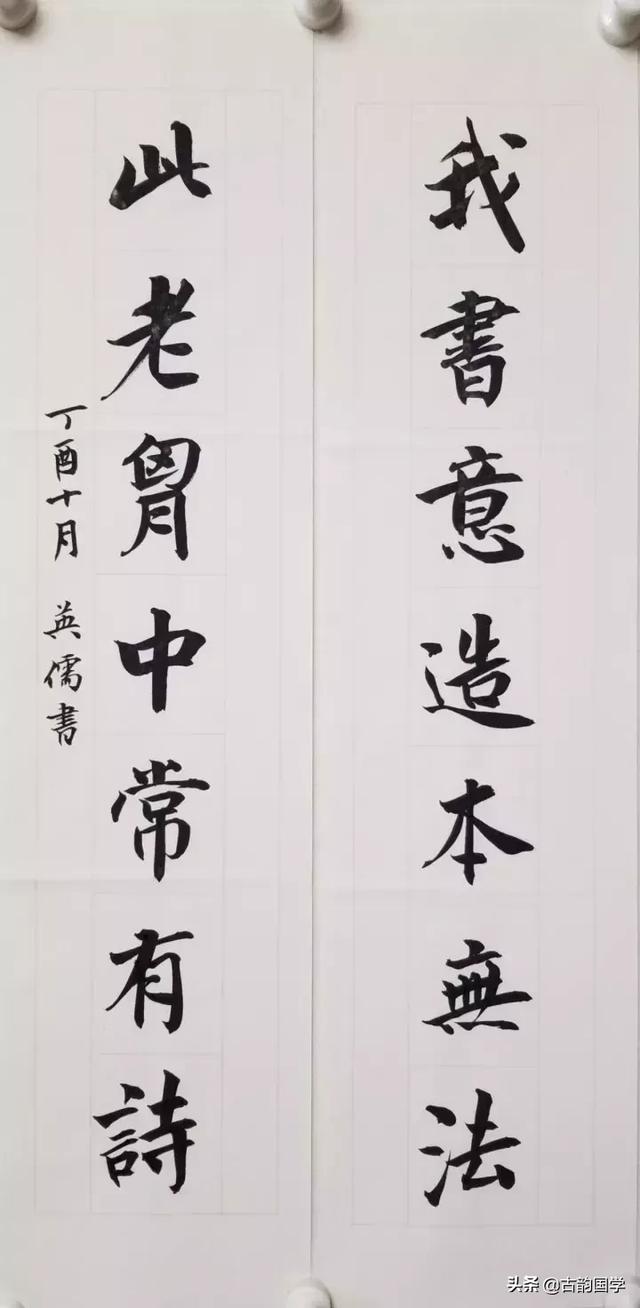 我書意造本無法
此老胷中常有詩
丁酉十月 英儒書
头条 @古韵国学